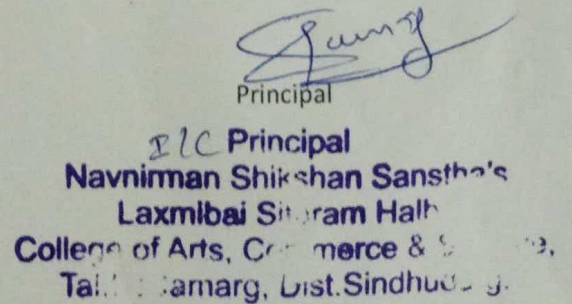 Principal
I/C Principal
Navnirman Shikshan Sanstha's
Laxmibai Sitaram Halb
College of Arts, Commerce &
Dist.Sindhudurg.